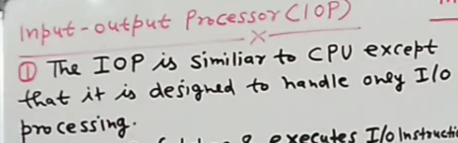 Input-output Processor (IOP)
① The IOP is similiar to CPU except
that it is designed to handle only I/o
processing.
executes I/o Instructi